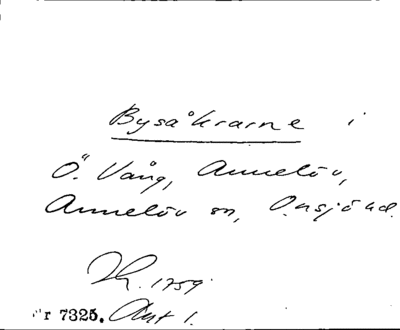 Bysåkrarne i
Ö. Vång, Annelöv,
Annelöv sn, Onsjö hd.
1759.
r 7325. Akt 1.